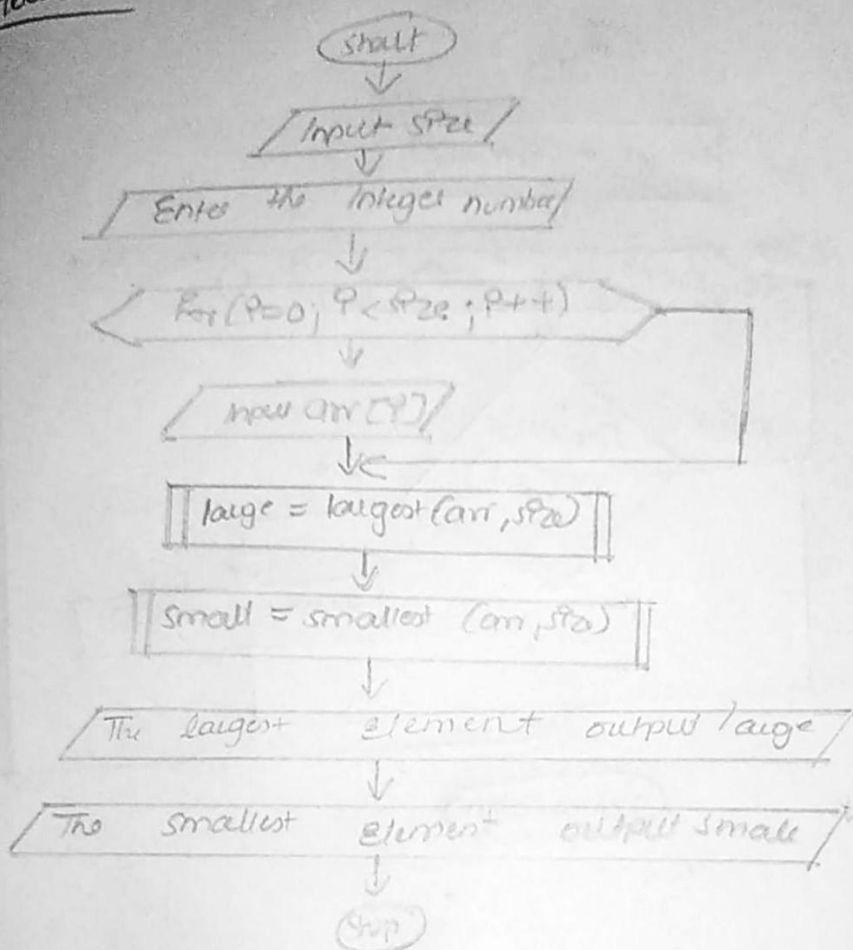 start
Input size
Enter the integer number
For(i=0; i<size; i++)
input arr[i]
large = largest(arr, size)
small = smallest (arr, size)
The largest element output large
The smallest element output small
Stop